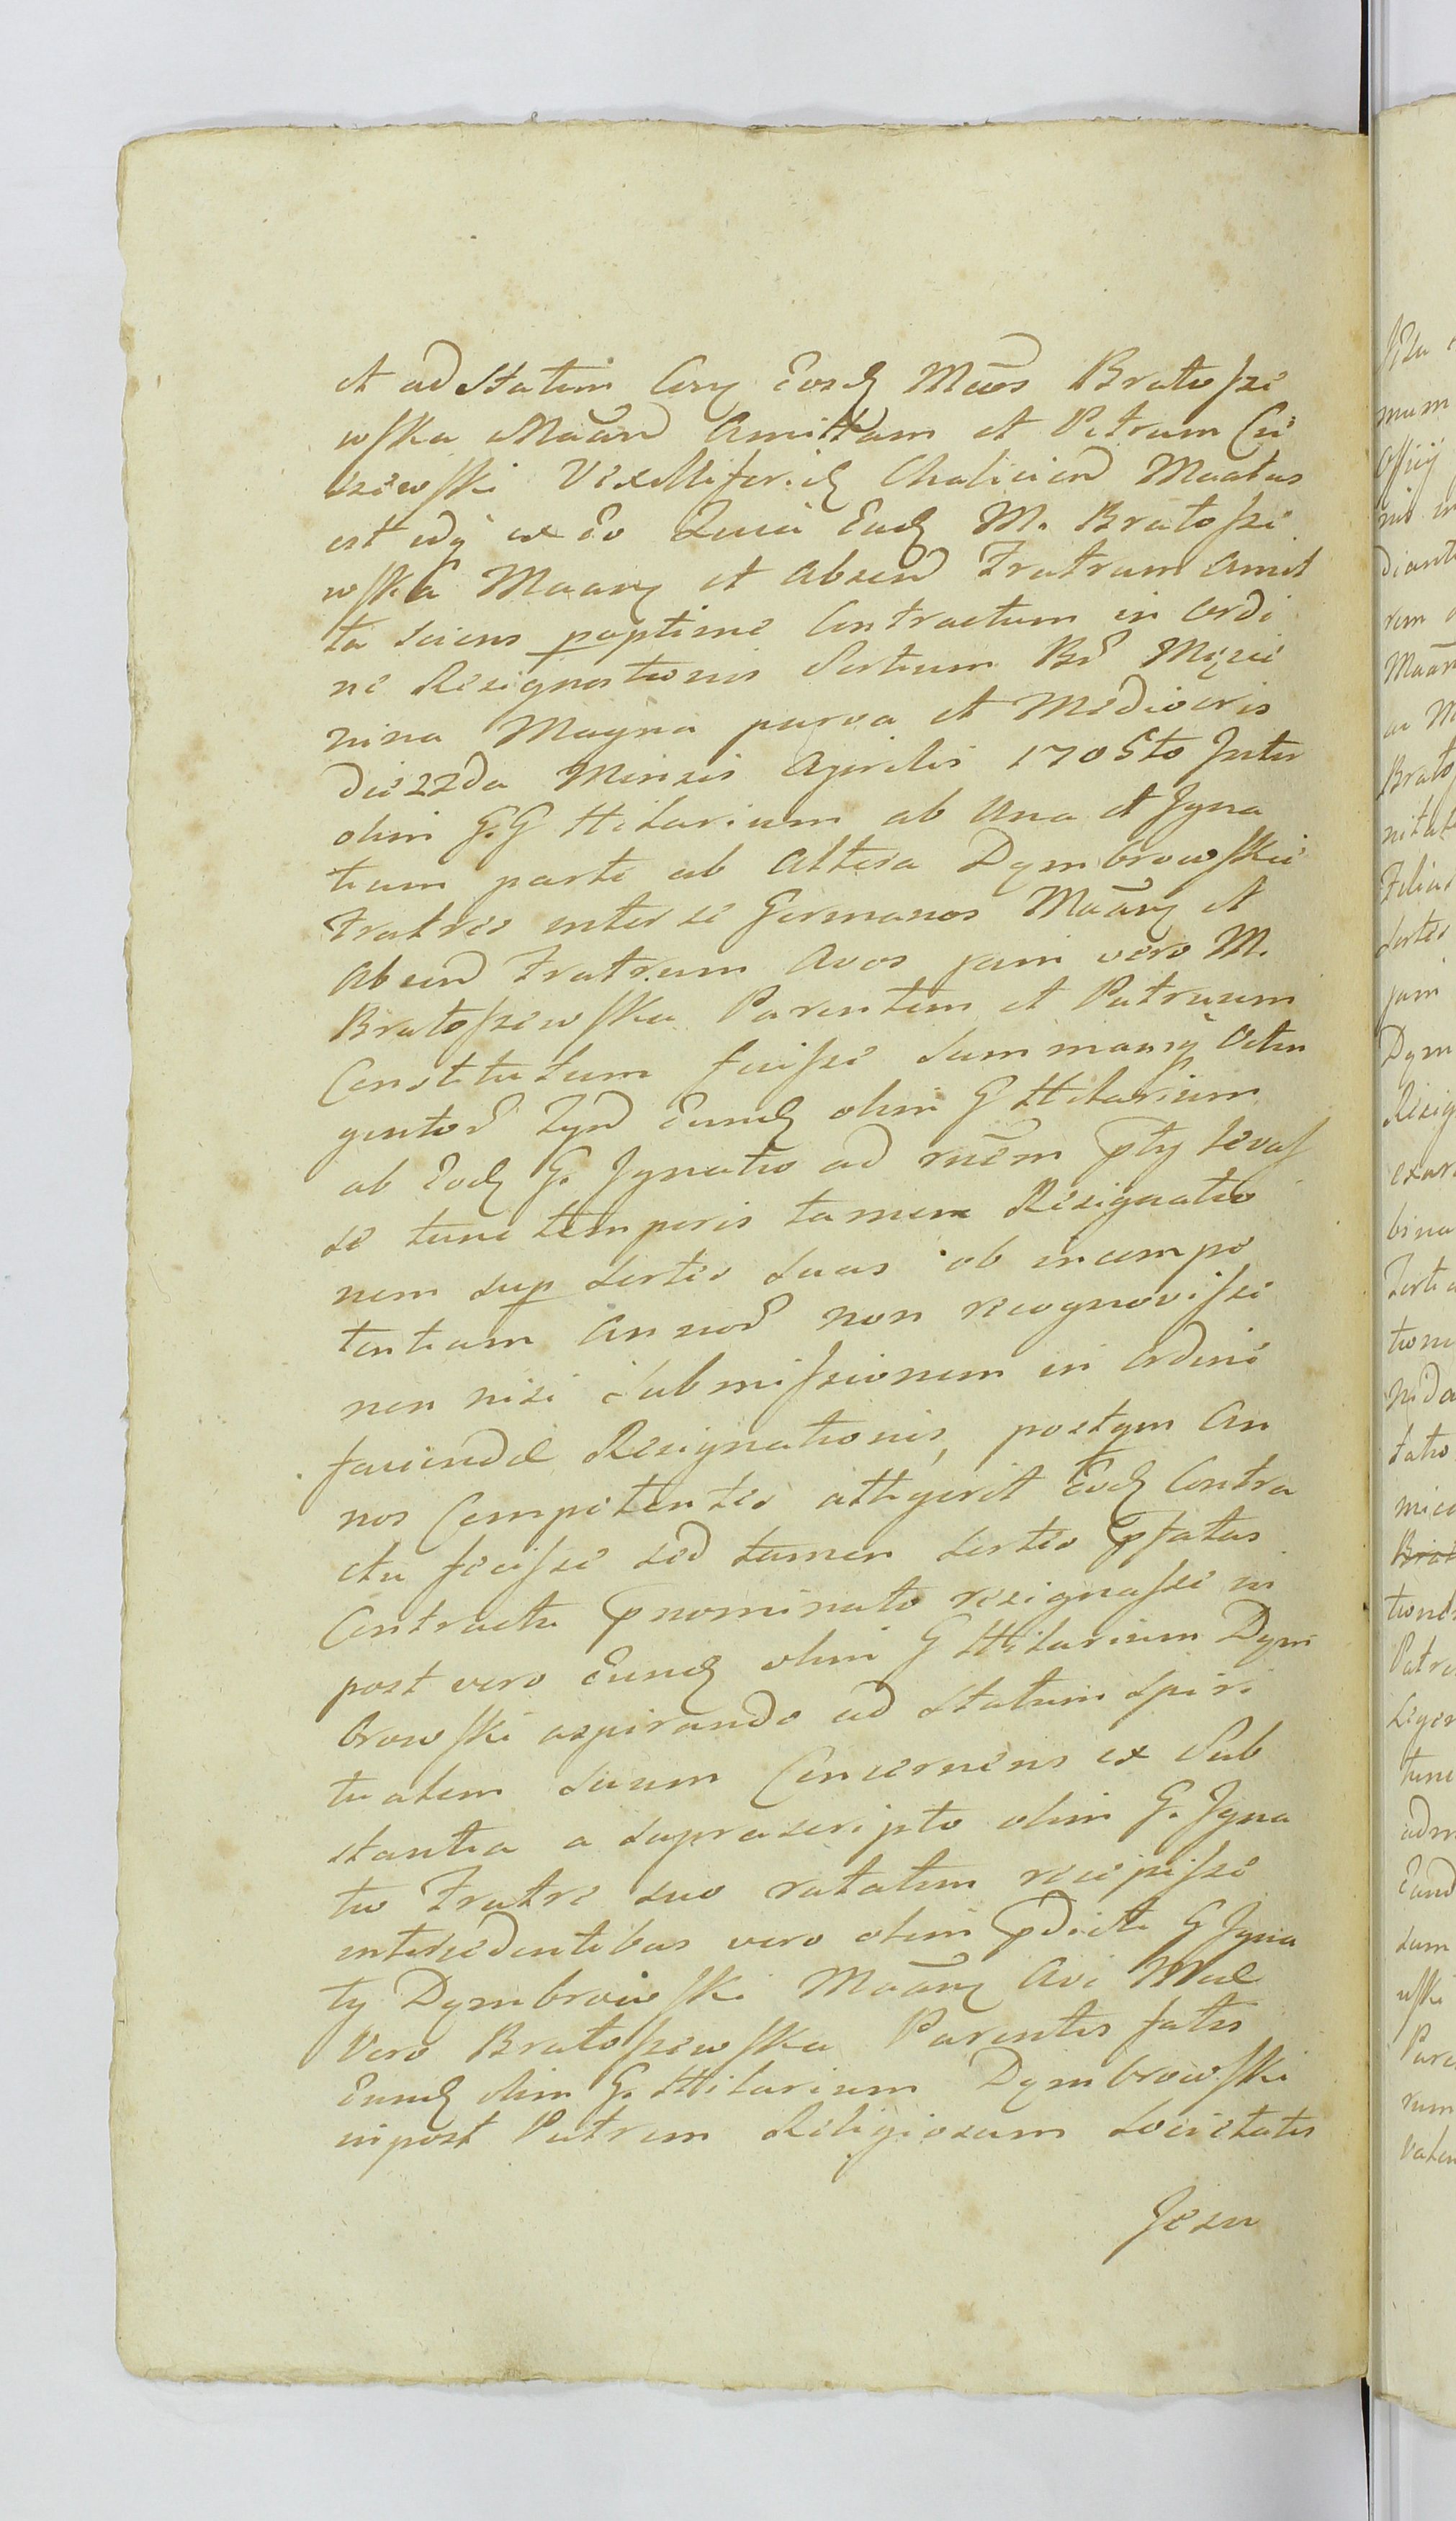 et ad Statum Cory Eosdq Mcos Bratosze
wska Maãnd Amittam et Petrum Cie
szewski Vexilliferidq Chalicien Maatus
est idq ex Eo Quia Eadq M. Bratosze
wska Maarq et Absend Fratrum Amit
ta sciens poptime Contractum in ordi
ne Resignationis Sortium Bõ Męcie
nina Magna parva et Mediocris
die 22da Mensis Aprilis 1705to Inter
olim G.G Hilarium ab Una et Igna
tium parte ab Altera Dymbrowskie
Fratres inter se Germanos Maãrq et
Absend Fratrum Avos jam vero M.
Bratoszewska Parentem et Patruum
Constitutum fuisse Summamq Octin
gentor Fyd Eundq olim G Hilarium
ab Eodq G. Ignatio ad rnem pty levas
se tunc temporis tamen Resignatio
nem sup sortes suas ob incompe
tentiam Annor non recognovisse
non nisi Submissionem in ordine
faciendae Resignationis, postqm An
nos Competentes attigerit Eodq Contra
ctu fecisse sed tamen sortes pfatas
Contractu pnominato resignasse in
post vero Eundq olim G Hilarium Dym
browski aspirando ad Statum Spiri
tualem Suum Concernens ex Sub
stantia a suprascripto olim G. Igna
tio Fratre suo ratatim recepisse
intercedentibus vero olim pdicti G Igna
ty Dymbrowski Maãrq Avi Mae
Vero Bratoszewska Parentis fatis
Eundq olim G. Hilarium Dymbrowski
inpost Patrem Religiosum Societatis
Jesu